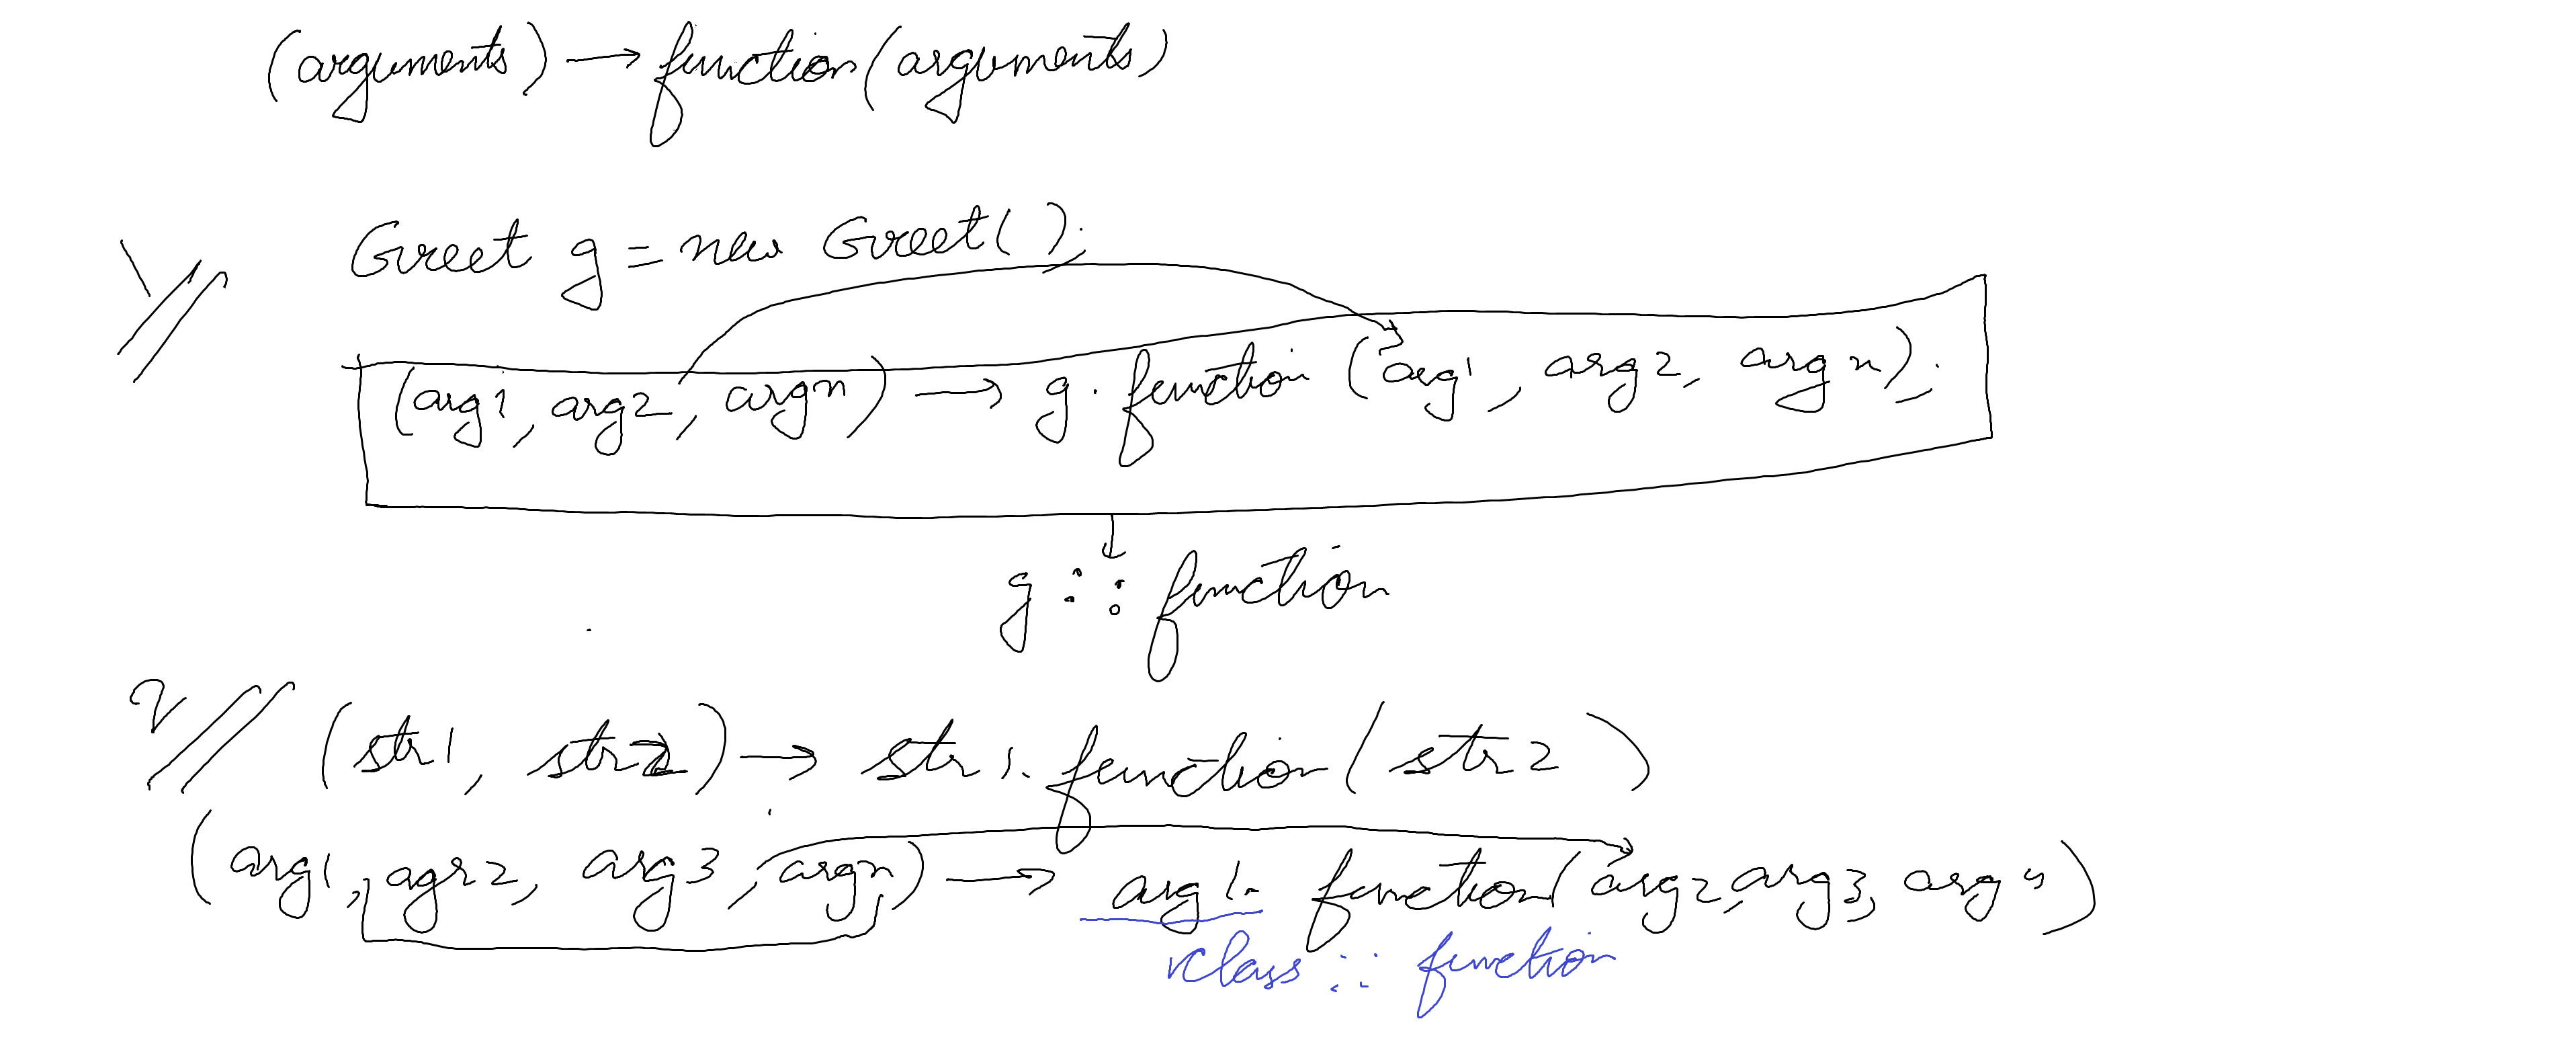 (arguments) → function(arguments)
1// Greet g = new Greet();
(arg1, arg2, argn) → g.function (arg1, arg2, argn);
g :: function
2// (str1, str2) → str1.function(str2)
(arg1, agr2, arg3, argn) → arg1. function(arg2, arg3, argn)
class :: function